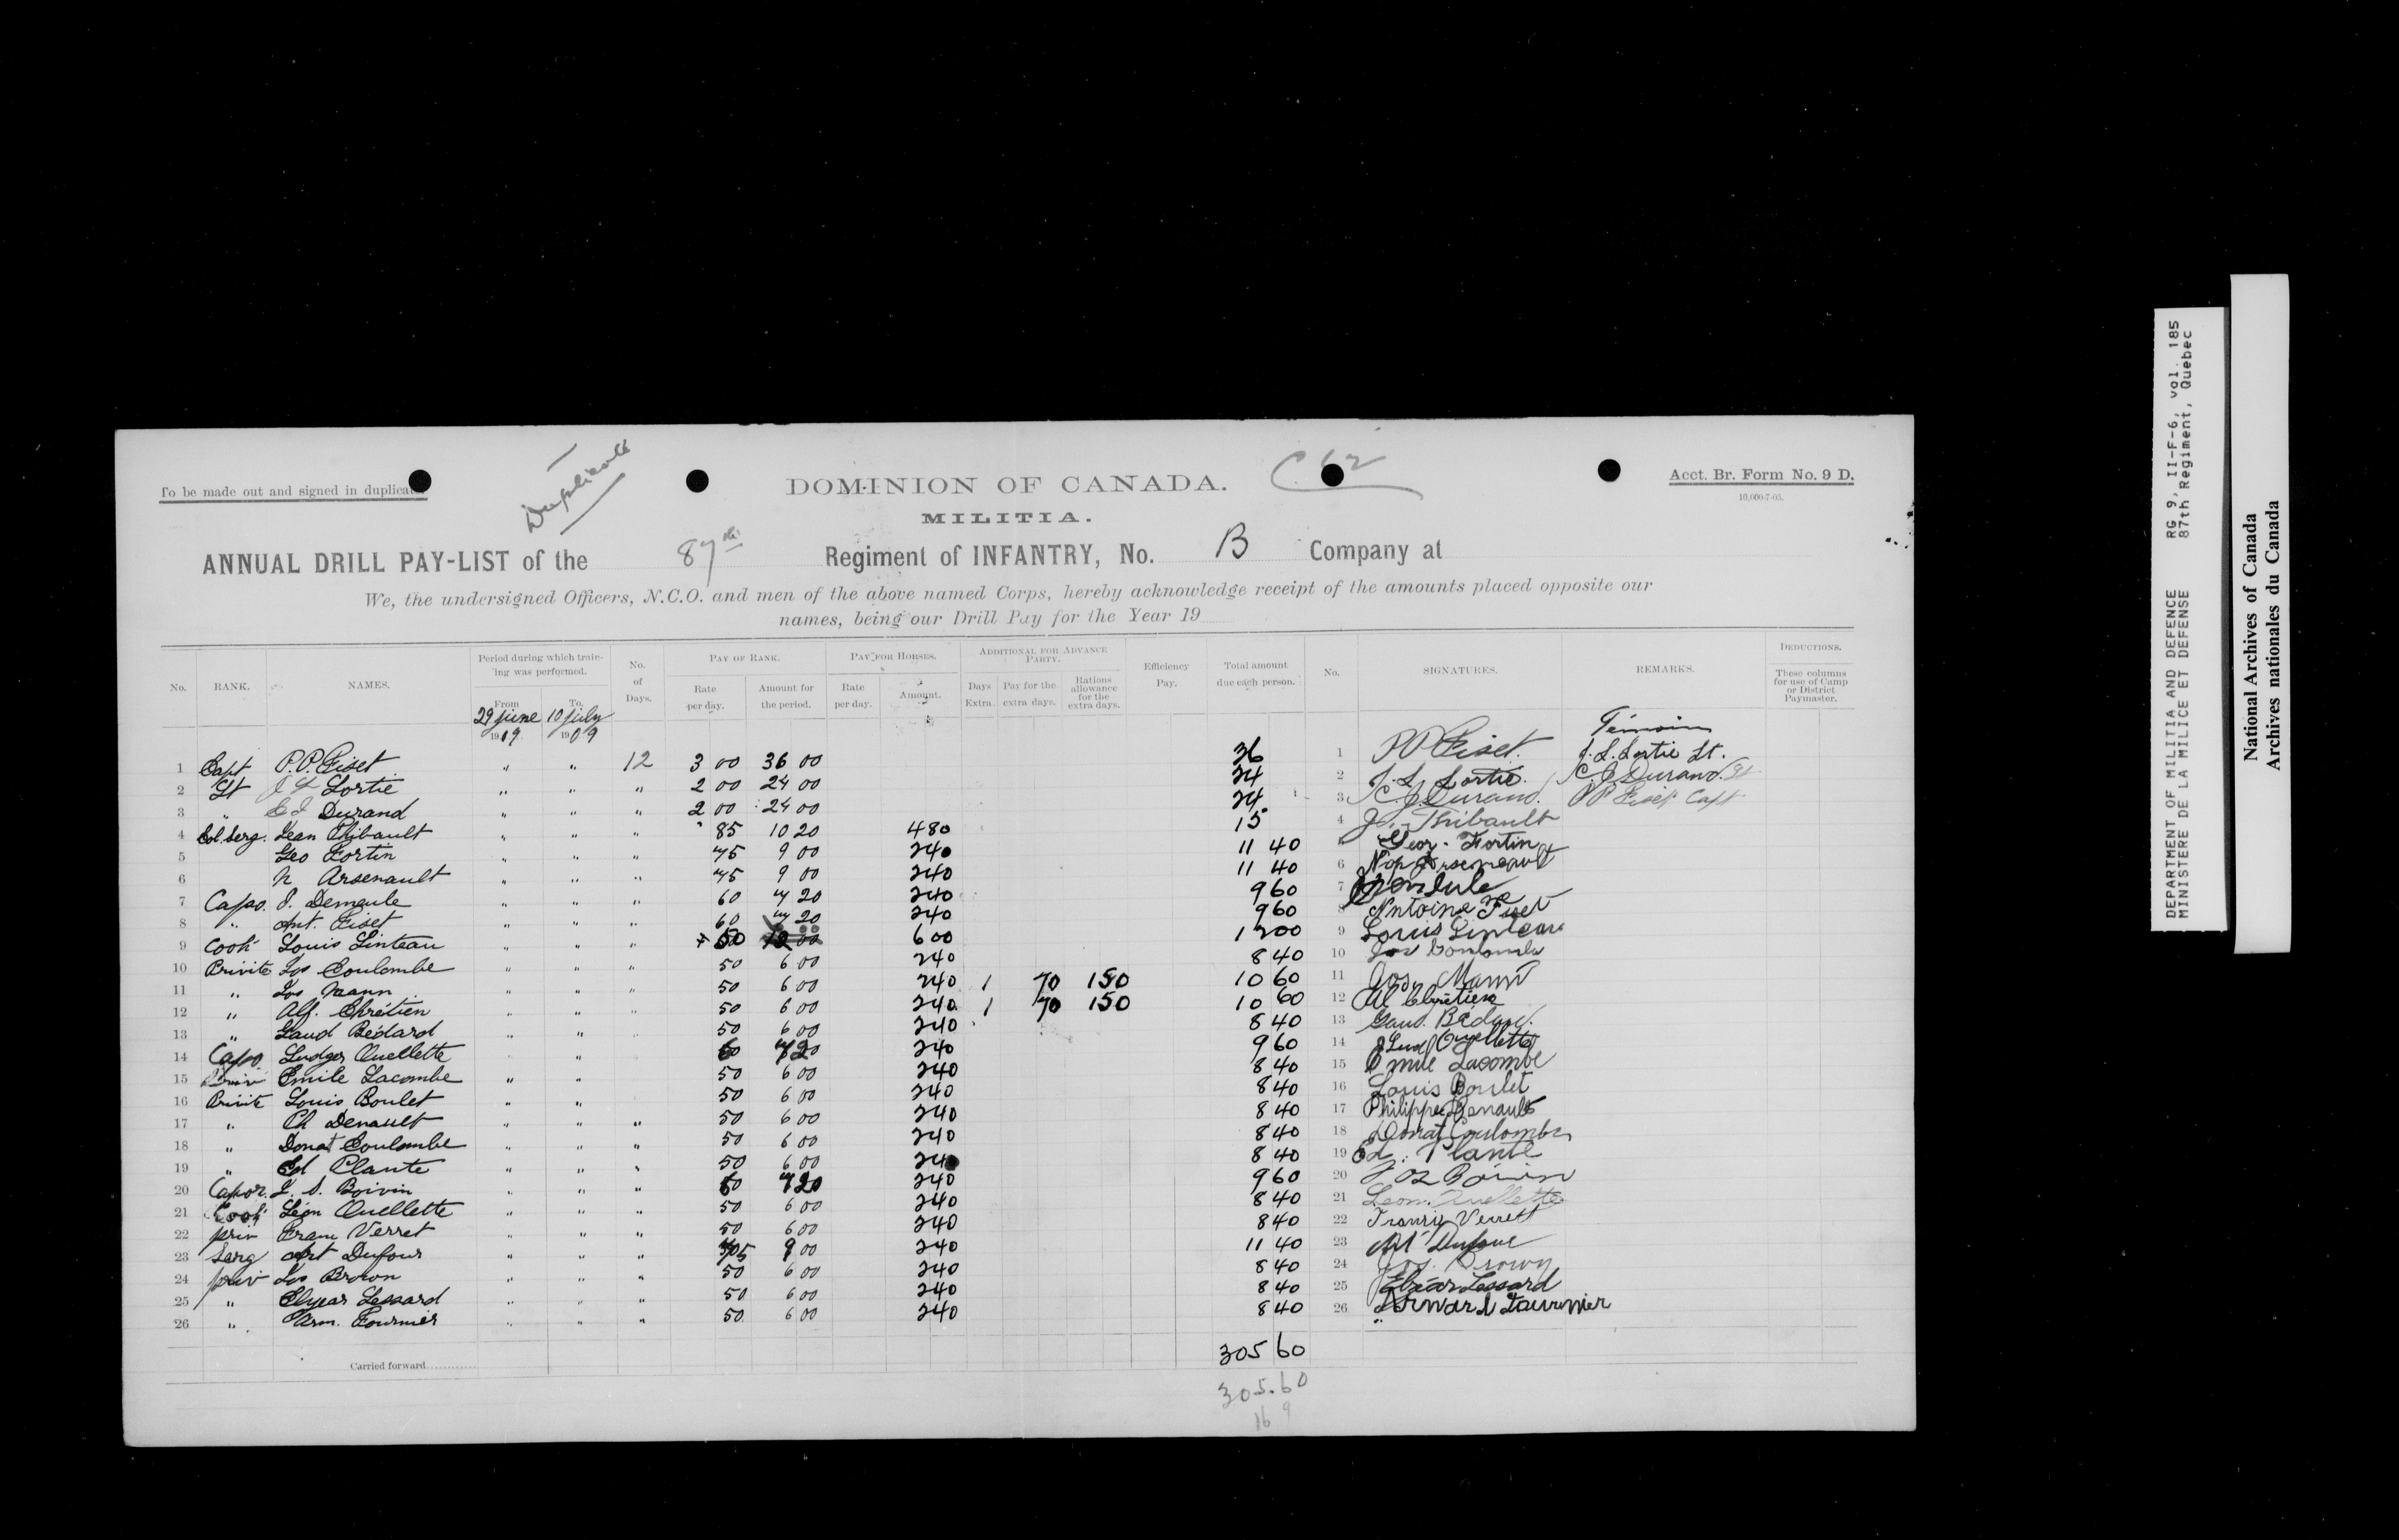 To be made out and signed in duplicate
Duplicate
DOMINION OF CANADA.
C 12
Acct. Br. Form No. 9 D.
10,000-7-05.
MILITIA.
ANNUAL DRILL PAY-LIST of the 87th Regiment of INFANTRY, No. B Company at
We, the undersigned Officers, N.C.O. and men of the above named Corps, hereby acknowledge receipt of the amounts placed opposite our
names, being our Drill Pay for the Year 19
No. RANK. NAMES. Period during which training was performed. From To No. of Days. PAY OF RANK. Rate per day. Amount for the period. PAY FOR HORSES. Rate per day. Amount. ADDITIONAL FOR ADVANCE PARTY. Days Extra. Pay for the extra days. Rations allowance for the extra days. Efficiency Pay. Total amount due each person. No. SIGNATURES. REMARKS. DEDUCTIONS. These columns for use of Camp or District Paymaster.
29 june 1909 10 july 1909
Témoin
1 Capt P.P. Fiset " " 12 3 00 36 00 36 1 P P Fiset J. L. Lortie Lt.
2 Lt J L Lortie " " " 2 00 24 00 24 2 J. L. Lortie C. J. Durand Lt
3 " C J Durand " " " 2 00 24 00 24 3 C. J. Durand P P Fiset Capt
4 Col Serg. Jean Thibault " " " 85 10 20 4 80 15 4 J. Thibault
5 Geo Fortin " " " 75 9 00 2 40 11 40 5 Geor. Fortin
6 N Arsenault " " " 75 9 00 2 40 11 40 6 Nap Arseneault
7 Capo. J. Demeule " " " 60 7 20 2 40 9 60 7
8 " Ant. Fiset " " " 60 7 20 2 40 9 60 8 Antoine Fiset
9 Cook Louis Linteau " " " 50 6 00 12 00 9 Louis Linteau
10 Privite Jos Coulombe " " " 50 6 00 2 40 8 40 10 Jos Coulombe
11 " Jos Mann " " " 50 6 00 2 40 1 70 1 50 10 60 11 Jos. Mann
12 " Alf. Chrétien " " " 50 6 00 2 40 1 70 1 50 10 60 12 Al Chrétien
13 " Laud Bédard " " 50 6 00 2 40 8 40 13 Laud. Bédard
14 Capo. Ludger Ouellette " " 60 7 20 2 40 9 60 14 Lud Ouellette
15 Privi Emile Lacombe " " 50 6 00 2 40 8 40 15 Emile Lacombe
16 Privite Louis Boulet " " 50 6 00 2 40 8 40 16 Louis Boulet
17 " Ph Denault " " " 50 6 00 2 40 8 40 17 Philippe Denault
18 " Donat Coulombe " " " 50 6 00 2 40 8 40 18 Donat Coulombe
19 " Ed Plante " " " 50 6 00 2 40 8 40 19 Ed. Plante
20 Capor. J. S. Boivin " " " 60 7 20 2 40 9 60 20 Boivin
21 Cook Léon Ouellette " " " 50 6 00 2 40 8 40 21 Leon. Ouellette
22 priv Franc Verret " " " 50 6 00 2 40 8 40 22 Verrett
23 Serg Art Dufour " " " 75 9 00 2 40 11 40 23 Art Dufour
24 priv Jos Brown " " " 50 6 00 2 40 8 40 24 Jos. Brown
25 " Elyear Lessard " " " 50 6 00 2 40 8 40 25 Elzéar Lessard
26 " Arm. Fournier " " " 50 6 00 2 40 8 40 26 Fournier
305 60
Carried forward
305.60
16 9
DEPARTMENT OF MILITIA AND DEFENCE RG 9, II-F-6, vol. 185
MINISTERE DE LA MILICE ET DEFENSE 87th Regiment, Quebec
National Archives of Canada
Archives nationales du Canada